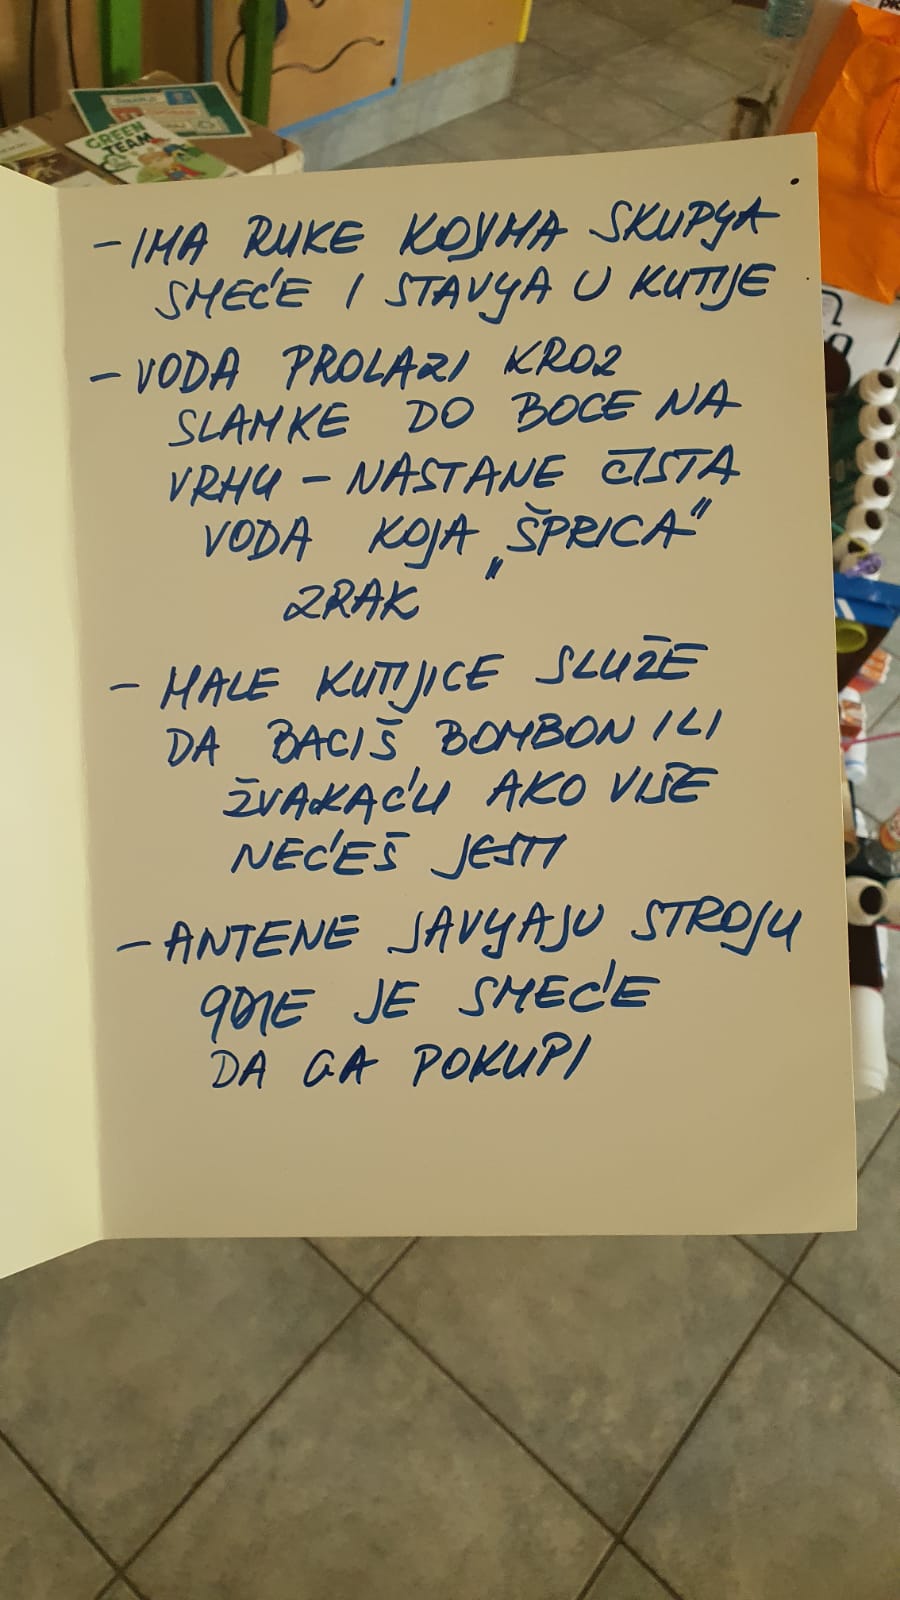 GREEN
TEAM
- IMA RUKE KOJIMA SKUPLJA
SMEĆE I STAVLJA U KUTIJE
- VODA PROLAZI KROZ
SLAMKE DO BOCE NA
VRHU - NASTANE ČISTA
VODA KOJA „ŠPRICA"
ZRAK
- MALE KUTIJICE SLUŽE
DA BACIŠ BOMBON ILI
ŽVAKAĆU AKO VIŠE
NEĆEŠ JESTI
- ANTENE JAVLJAJU STROJU
GDJE JE SMEĆE
DA GA POKUPI